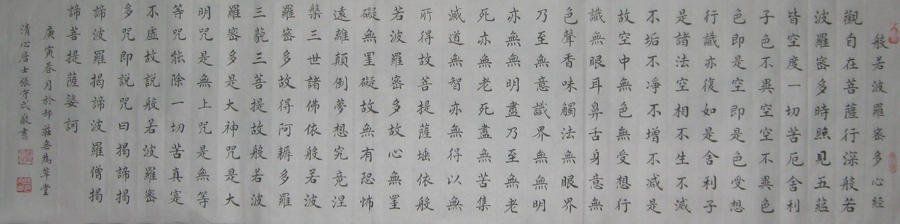 般若波羅密多心經
觀自在菩薩行深般若
波羅密多時照見五蘊
皆空度一切苦厄舍利
子色不異空空不異色
色即是空即是色受想
行識亦復如是舍利子
是諸法空相不生不滅
不垢不淨不增不減是
故空中無色無受想行
識無眼耳鼻舌身意無
色聲香味觸法無眼界
乃至無意識界無無明
亦無無明盡乃至無老
死亦無老死盡無苦集
滅道無智亦無得以無
所得故菩提薩埵依般
若波羅密多故心無罣
礙無罣礙故無有恐怖
遠離顛倒夢想究竟涅
槃三世諸佛依般若波
羅密多故得阿耨多羅
三藐三菩提故般若波
羅密多是大神咒是大
明咒是無上咒是無等
等咒能除一切苦真實
不虛故說般若波羅密
多咒即說咒曰揭諦揭
諦波羅揭諦波羅僧揭
諦菩提薩婆訶
庚寅春月於無為草堂
清心居士張守成敬書